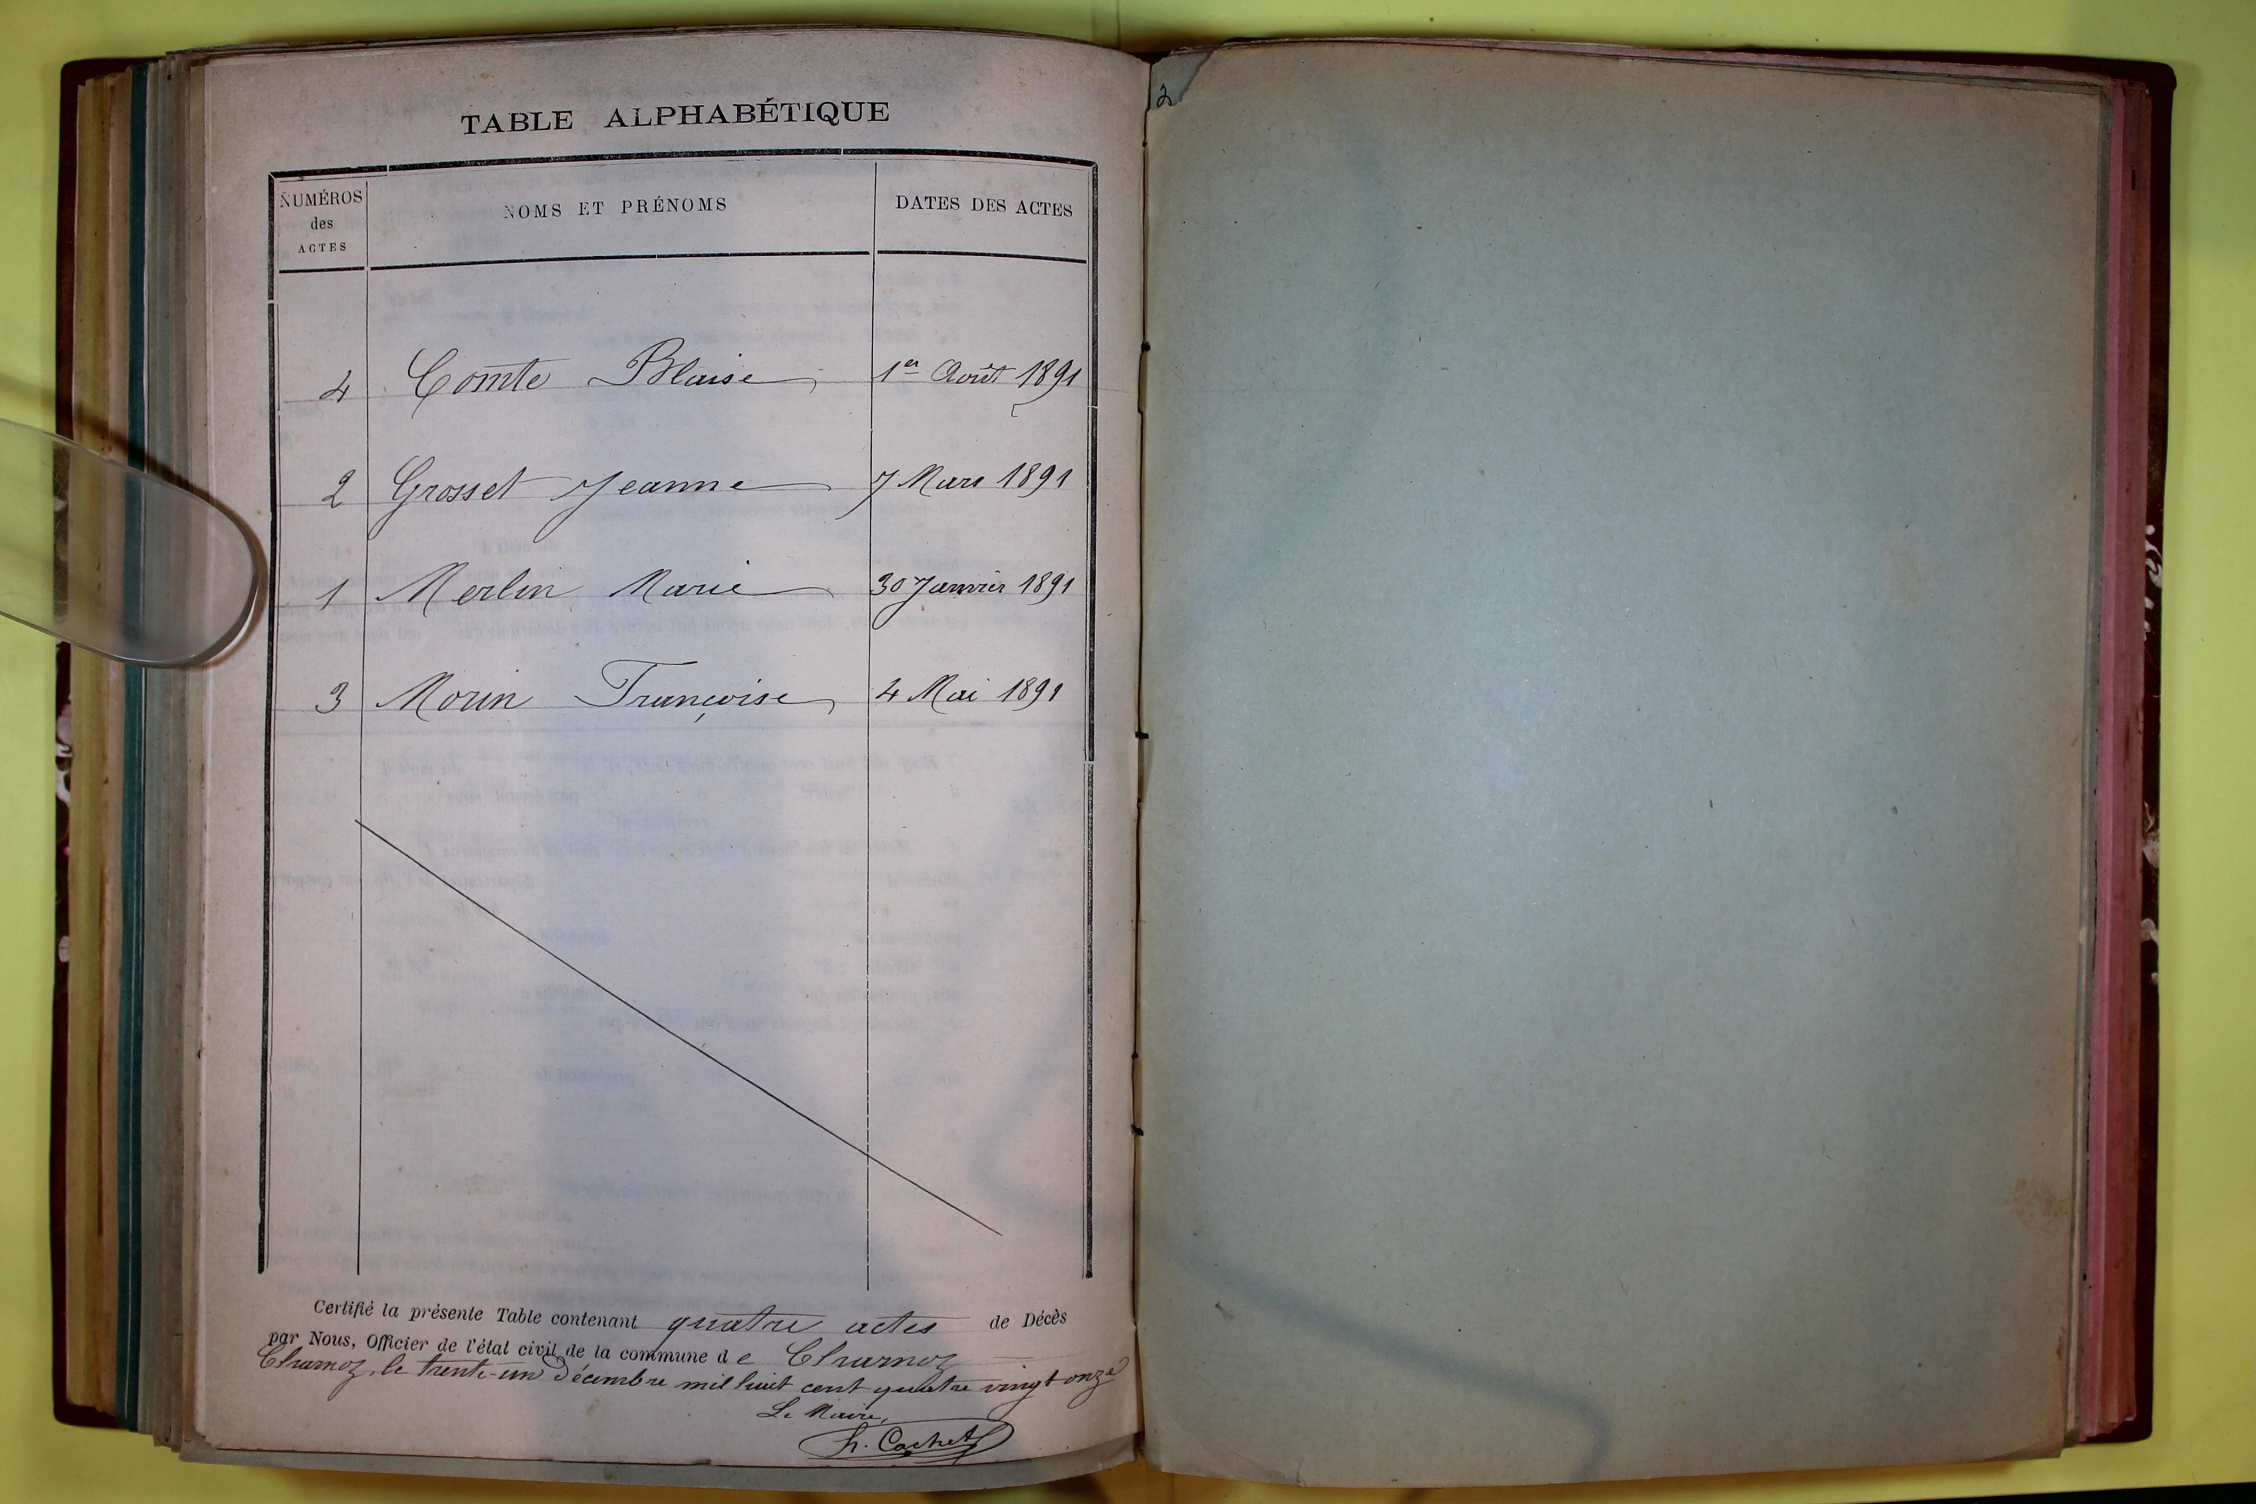 TABLE ALPHABÉTIQUE
NUMÉROS des ACTES NOMS ET PRÉNOMS DATES DES ACTES
4 Comte Blaise 1er Août 1891
2 Grosset Jeanne 7 Mars 1891
1 Merlin Marie 30 Janvier 1891
3 Morin Françoise 4 Mai 1891
Certifié la présente Table contenant quatre actes de Décès
par Nous, Officier de l'état civil de la commune de Charnoz
Charnoz, le trente-un Décembre mil huit cent quatre vingt onze
Le Maire,
h. Cachet
2